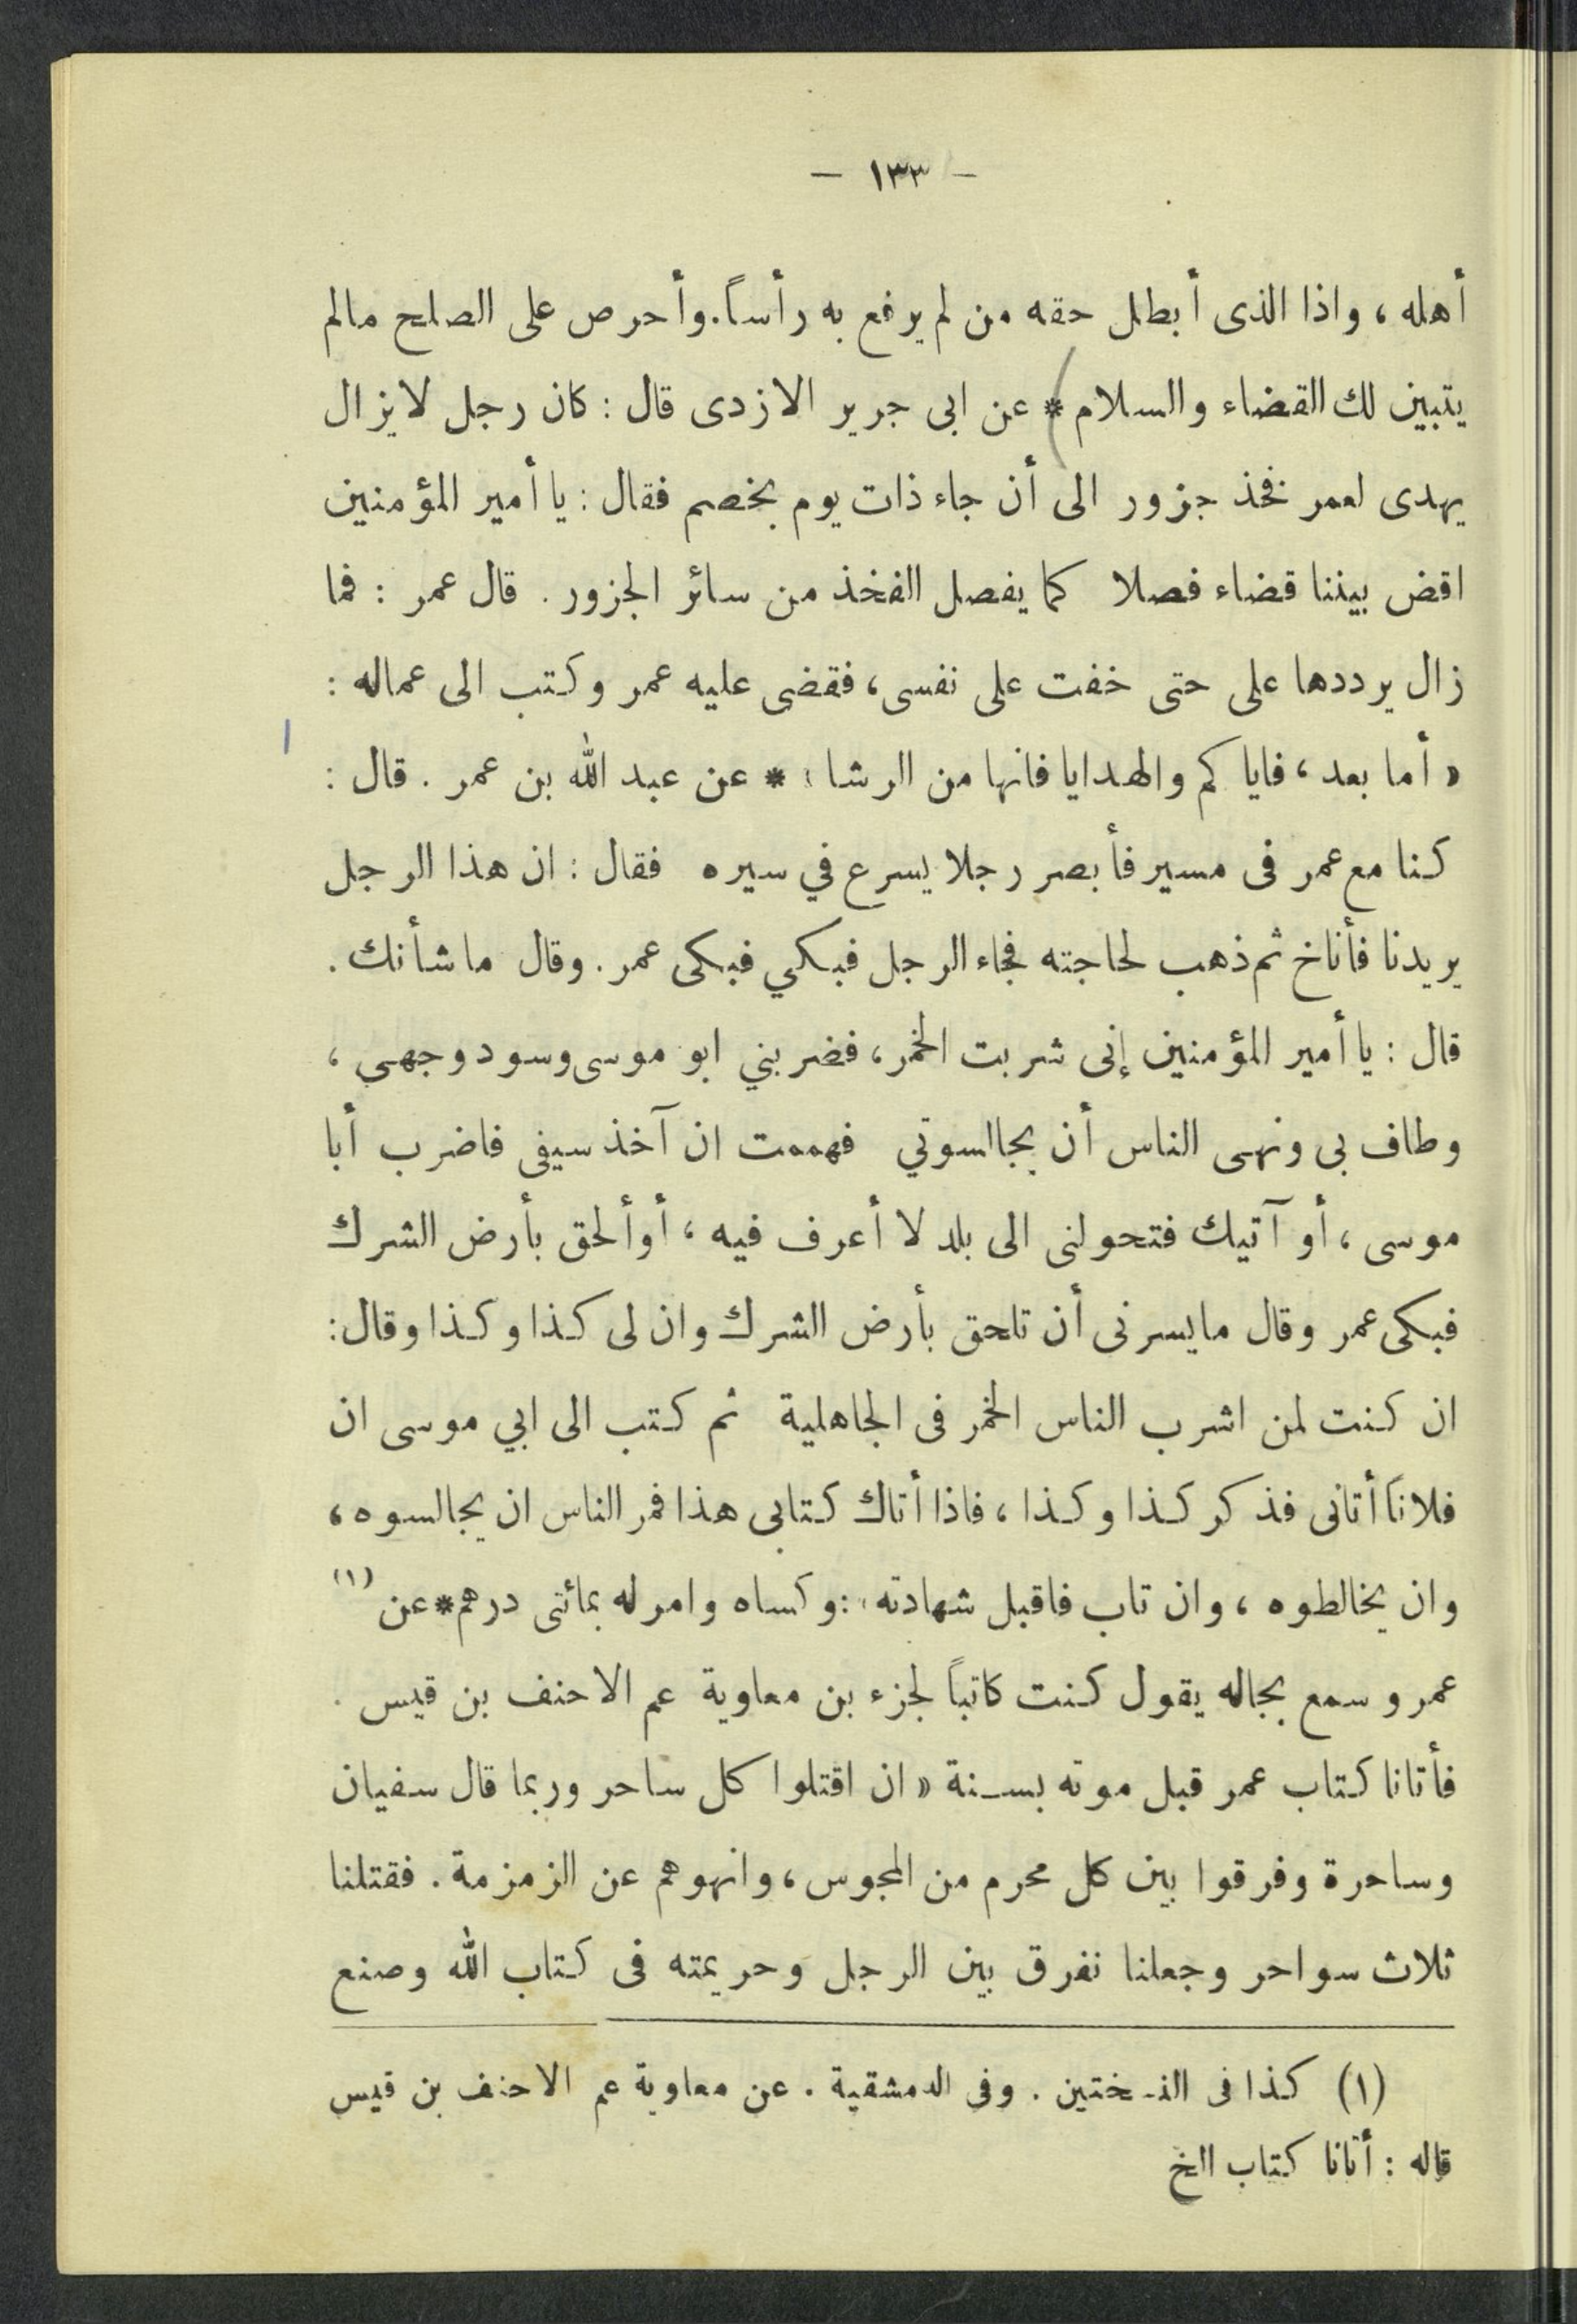 — ١٣٣ —
أهله ، واذا الذى أبطل حقه من لم يرفع به رأساً. وأحرص على الصلح مالم
يتبين لك القضاء والسلام * عن ابى جرير الازدى قال : كان رجل لا يزال
يهدى لعمر فخذ جزور الى أن جاء ذات يوم بخصم فقال : يا أمير المؤمنين
اقض بيننا قضاء فصلا كما يفصل الفخذ من سائر الجزور . قال عمر : فما
زال يرددها على حتى خفت على نفسى ، فقضى عليه عمر وكتب الى عماله :
« أما بعد ، فايا كم والهدايا فانها من الرشا » * عن عبد الله بن عمر . قال :
كنا مع عمر فى مسير فأبصر رجلا يسرع في سيره فقال : ان هذا الرجل
يريدنا فأناخ ثم ذهب لحاجته فجاء الرجل فبكي فبكى عمر . وقال ما شأنك .
قال : يا أمير المؤمنين إنى شربت الخمر ، فضربني ابو موسى وسود وجهى ،
وطاف بى ونهى الناس أن يجالسوني فهممت ان آخذ سيفى فاضرب أبا
موسى ، أو آتيك فتحولنى الى بلد لا أعرف فيه ، أو ألحق بأرض الشرك
فبكى عمر وقال ما يسرنى أن تلحق بأرض الشرك وان لى كذا وكذا وقال :
ان كنت لمن اشرب الناس الخمر فى الجاهلية ثم كتب الى ابي موسى ان
فلاناً أتانى فذكر كذا وكذا ، فاذا أتاك كتابى هذا فمر الناس ان يجالسوه ،
وان يخالطوه ، وان تاب فاقبل شهادته : وكساه وامر له بمائتى درهم * عن (١)
عمرو سمع بجاله يقول كنت كاتباً لجزء بن معاوية عم الاحنف بن قيس .
فأتانا كتاب عمر قبل موته بسنة « ان اقتلوا كل ساحر وربما قال سفيان
وساحرة وفرقوا بين كل محرم من المجوس ، وانهوهم عن الزمزمة . فقتلنا
ثلاث سواحر وجعلنا نفرق بين الرجل وحريمته فى كتاب الله وصنع
(١) كذا فى النسختين . وفى الدمشقية . عن معاوية عم الاحنف بن قيس
قاله : أتانا كتاب الخ